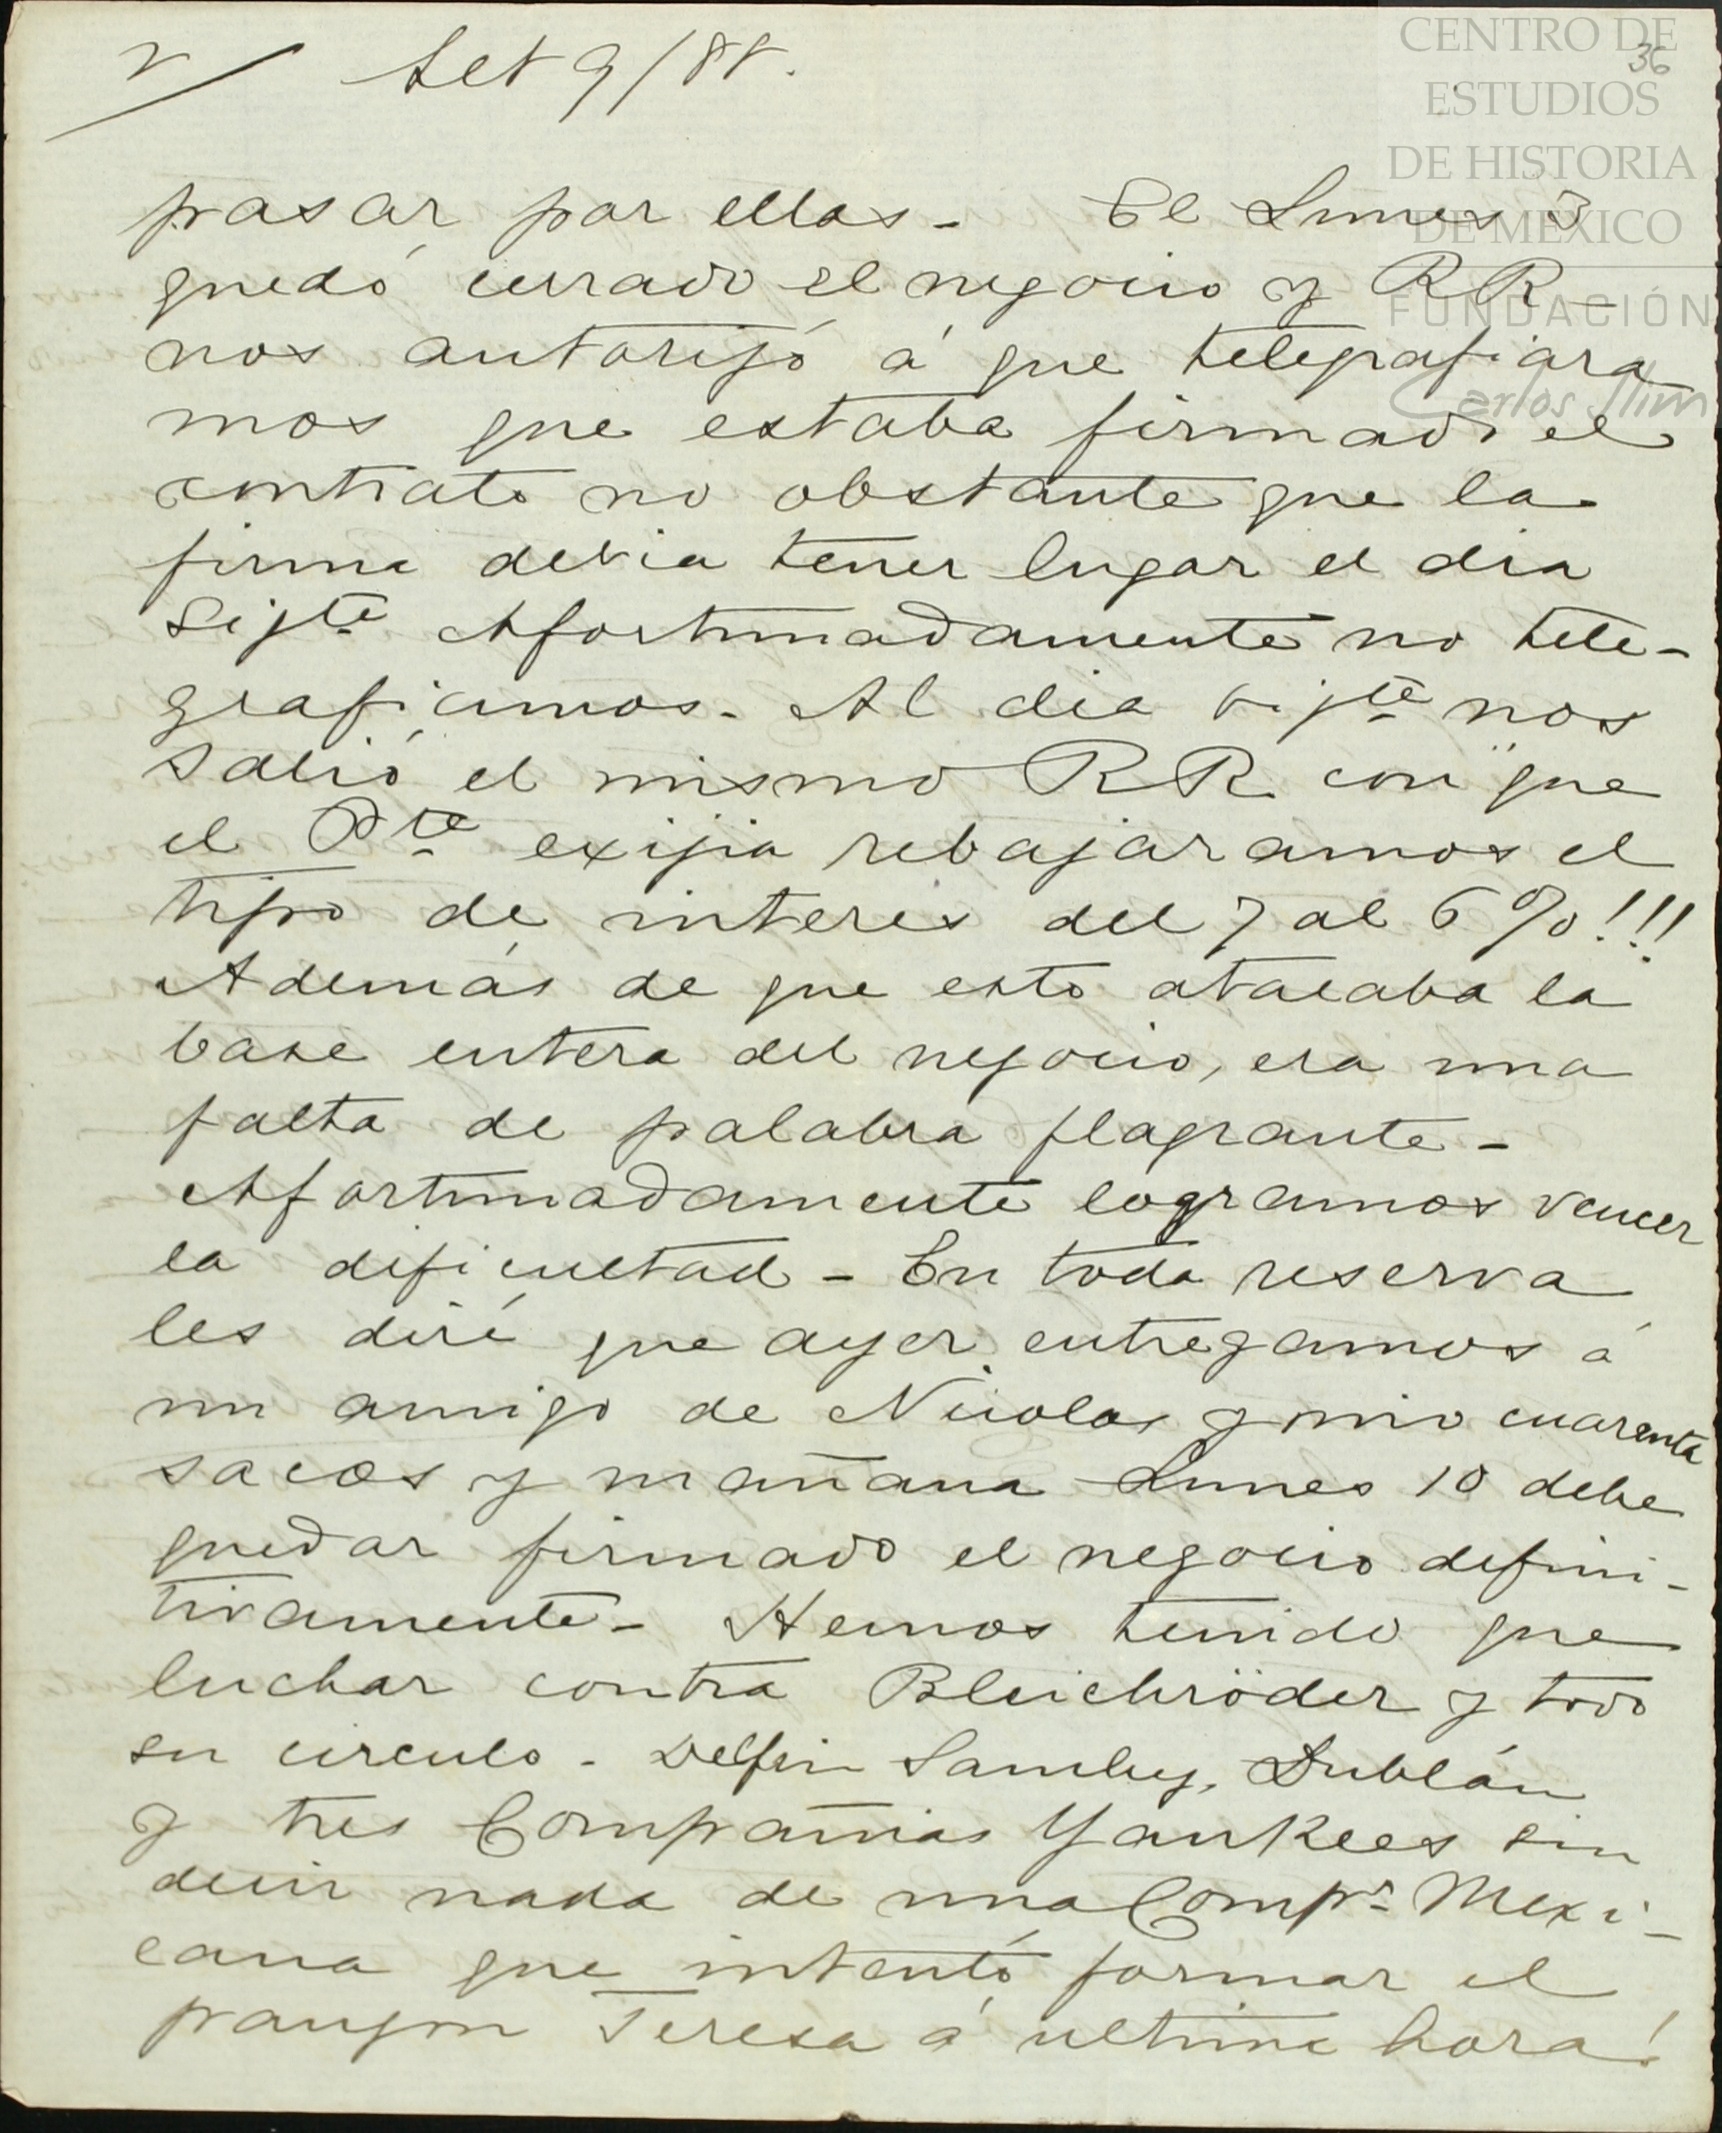 2/ Set 9/88.
36
CENTRO DE
ESTUDIOS
DE HISTORIA
DE MÉXICO
FUNDACIÓN
Carlos Slim
pasar por ellas - El Lunes 3
quedó cerrado el negocio y RR -
nos autorizó á que telegrafiara
mos que estaba firmado el
contrato no obstante que la
firma debia tener lugar el dia
sigte Afortunadamente no tele-
grafiamos. Al dia sigte nos
salió el mismo RR con que
el Pte exijia rebajaramos el
tipo de interés del 7 al 6%!!!
Además de que esto atacaba la
base entera del negocio, era una
falta de palabra flagrante -
Afortunadamente logramos vencer
la dificultad - En toda reserva
les diré que ayer entregamos á
un amigo de Nicolas y mio cuarenta
sacos y mañana Lunes 10 debe
quedar firmado el negocio defini-
tivamente - Hemos tenido que
luchar contra Bleichröder y todo
su circulo - Delfin Sanchez, Dublán
y tres Compañias Yankees sin
decir nada de una Compa Mexi-
cana que intentó formar el
Teresa á ultima hora!